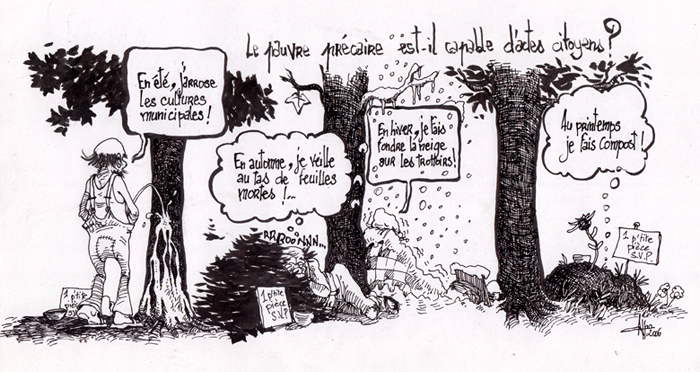 Le pauvre précaire est-il capable d'actes citoyens ?
En été, j'arrose
les cultures
municipales !
En automne, je veille
au tas de feuilles
mortes !...
En hiver, je fais
fondre la neige
sur les trottoirs !
Au printemps
je fais compost !
RRROONNN...
1 p'tite
pièce
S.V.P
1 p'tite
pièce
S.V.P.
2006